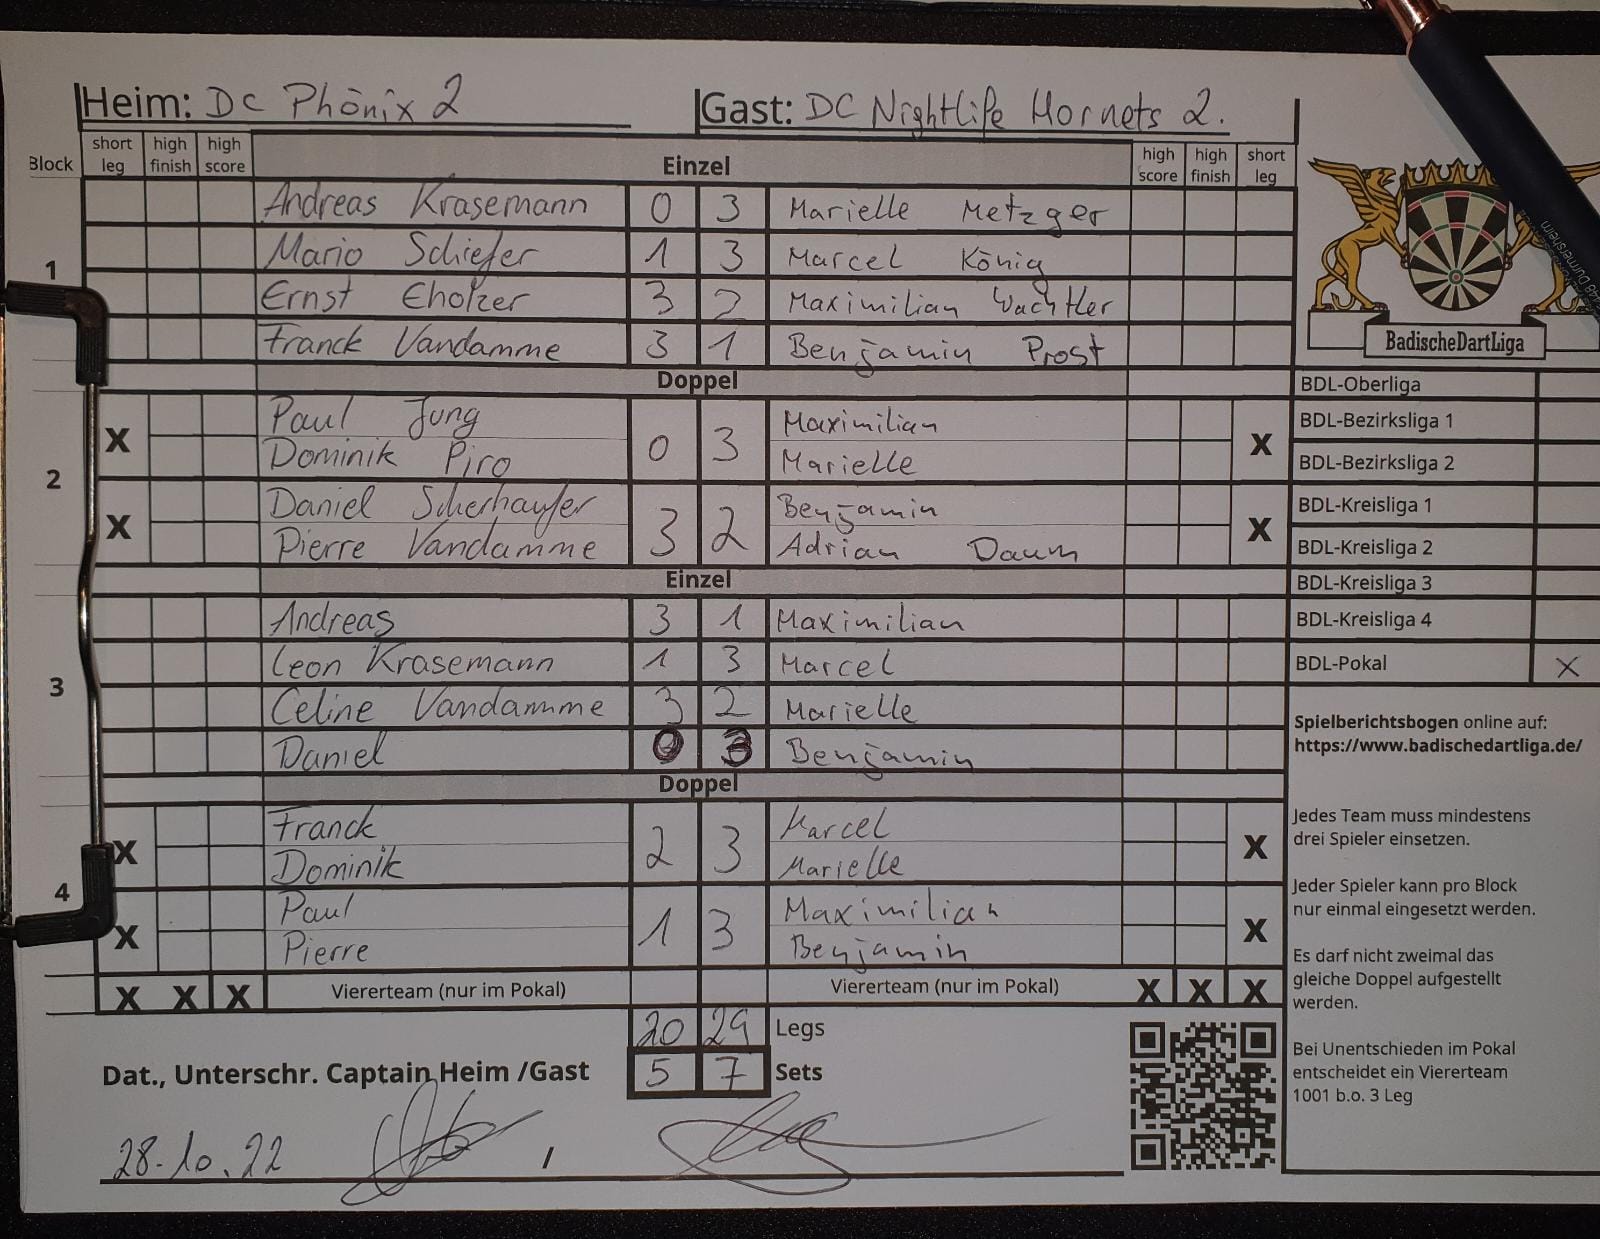 Heim: DC Phönix 2 Gast: DC Nightlife Hornets 2.
Block short leg high finish high score Einzel high score high finish short leg
1
Andreas Krasemann 0 3 Marielle Metzger
Mario Schiefer 1 3 Marcel König
Ernst Eholzer 3 2 Maximilian Wachtler
Franck Vandamme 3 1 Benjamin Prost
Doppel
2
X Paul Jung 0 3 Maximilian X
Dominik Piro Marielle
X Daniel Scherhaufer 3 2 Benjamin X
Pierre Vandamme Adrian Daum
Einzel
3
Andreas 3 1 Maximilian
Leon Krasemann 1 3 Marcel
Celine Vandamme 3 2 Marielle
Daniel 0 3 Benjamin
Doppel
4
X Franck 2 3 Marcel X
Dominik Marielle
X Paul 1 3 Maximilian X
Pierre Benjamin
X X X Viererteam (nur im Pokal) Viererteam (nur im Pokal) X X X
20 29 Legs
Dat., Unterschr. Captain Heim /Gast 5 7 Sets
28.10.22 /
BadischeDartLiga
BDL-Oberliga
BDL-Bezirksliga 1
BDL-Bezirksliga 2
BDL-Kreisliga 1
BDL-Kreisliga 2
BDL-Kreisliga 3
BDL-Kreisliga 4
BDL-Pokal X
Spielberichtsbogen online auf:
https://www.badischedartliga.de/
Jedes Team muss mindestens
drei Spieler einsetzen.
Jeder Spieler kann pro Block
nur einmal eingesetzt werden.
Es darf nicht zweimal das
gleiche Doppel aufgestellt
werden.
Bei Unentschieden im Pokal
entscheidet ein Viererteam
1001 b.o. 3 Leg
Durmersheim